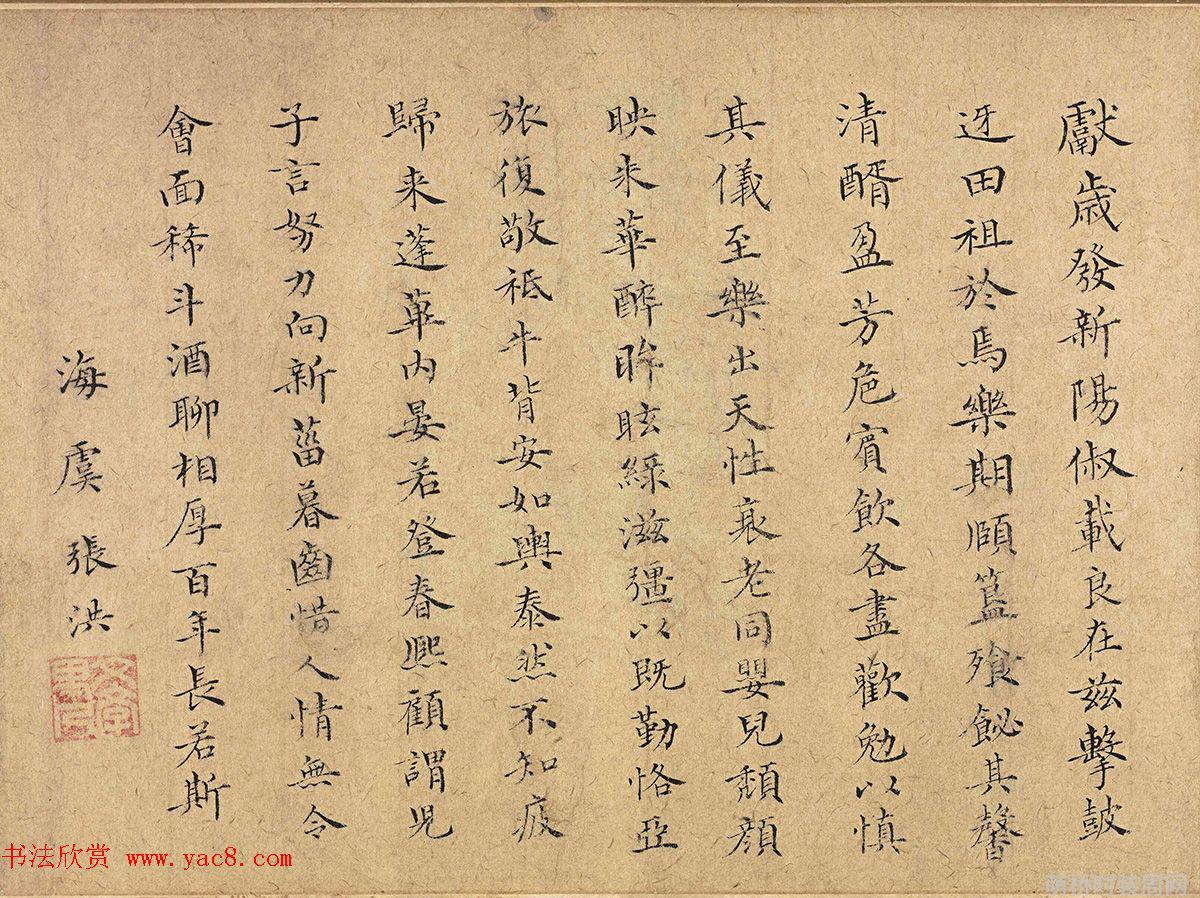 獻歲發新陽俶載良在兹擊鼓
迓田祖於焉樂期頤簋飧飶其馨
清醑盈芳卮賓飲各盡歡勉以慎
其儀至樂出天性衰老同嬰兒頳顔
映來華醉眸眩綠滋彊以既勤恪亞
旅復敬祗牛背安如輿泰然不知疲
歸来蓬蓽内晏若登春熙顧謂児
子言努力向新菑暮齒惜人情無令
會面稀斗酒聊相厚百年長若斯
海虞張洪
书法欣赏 www.yac8.com